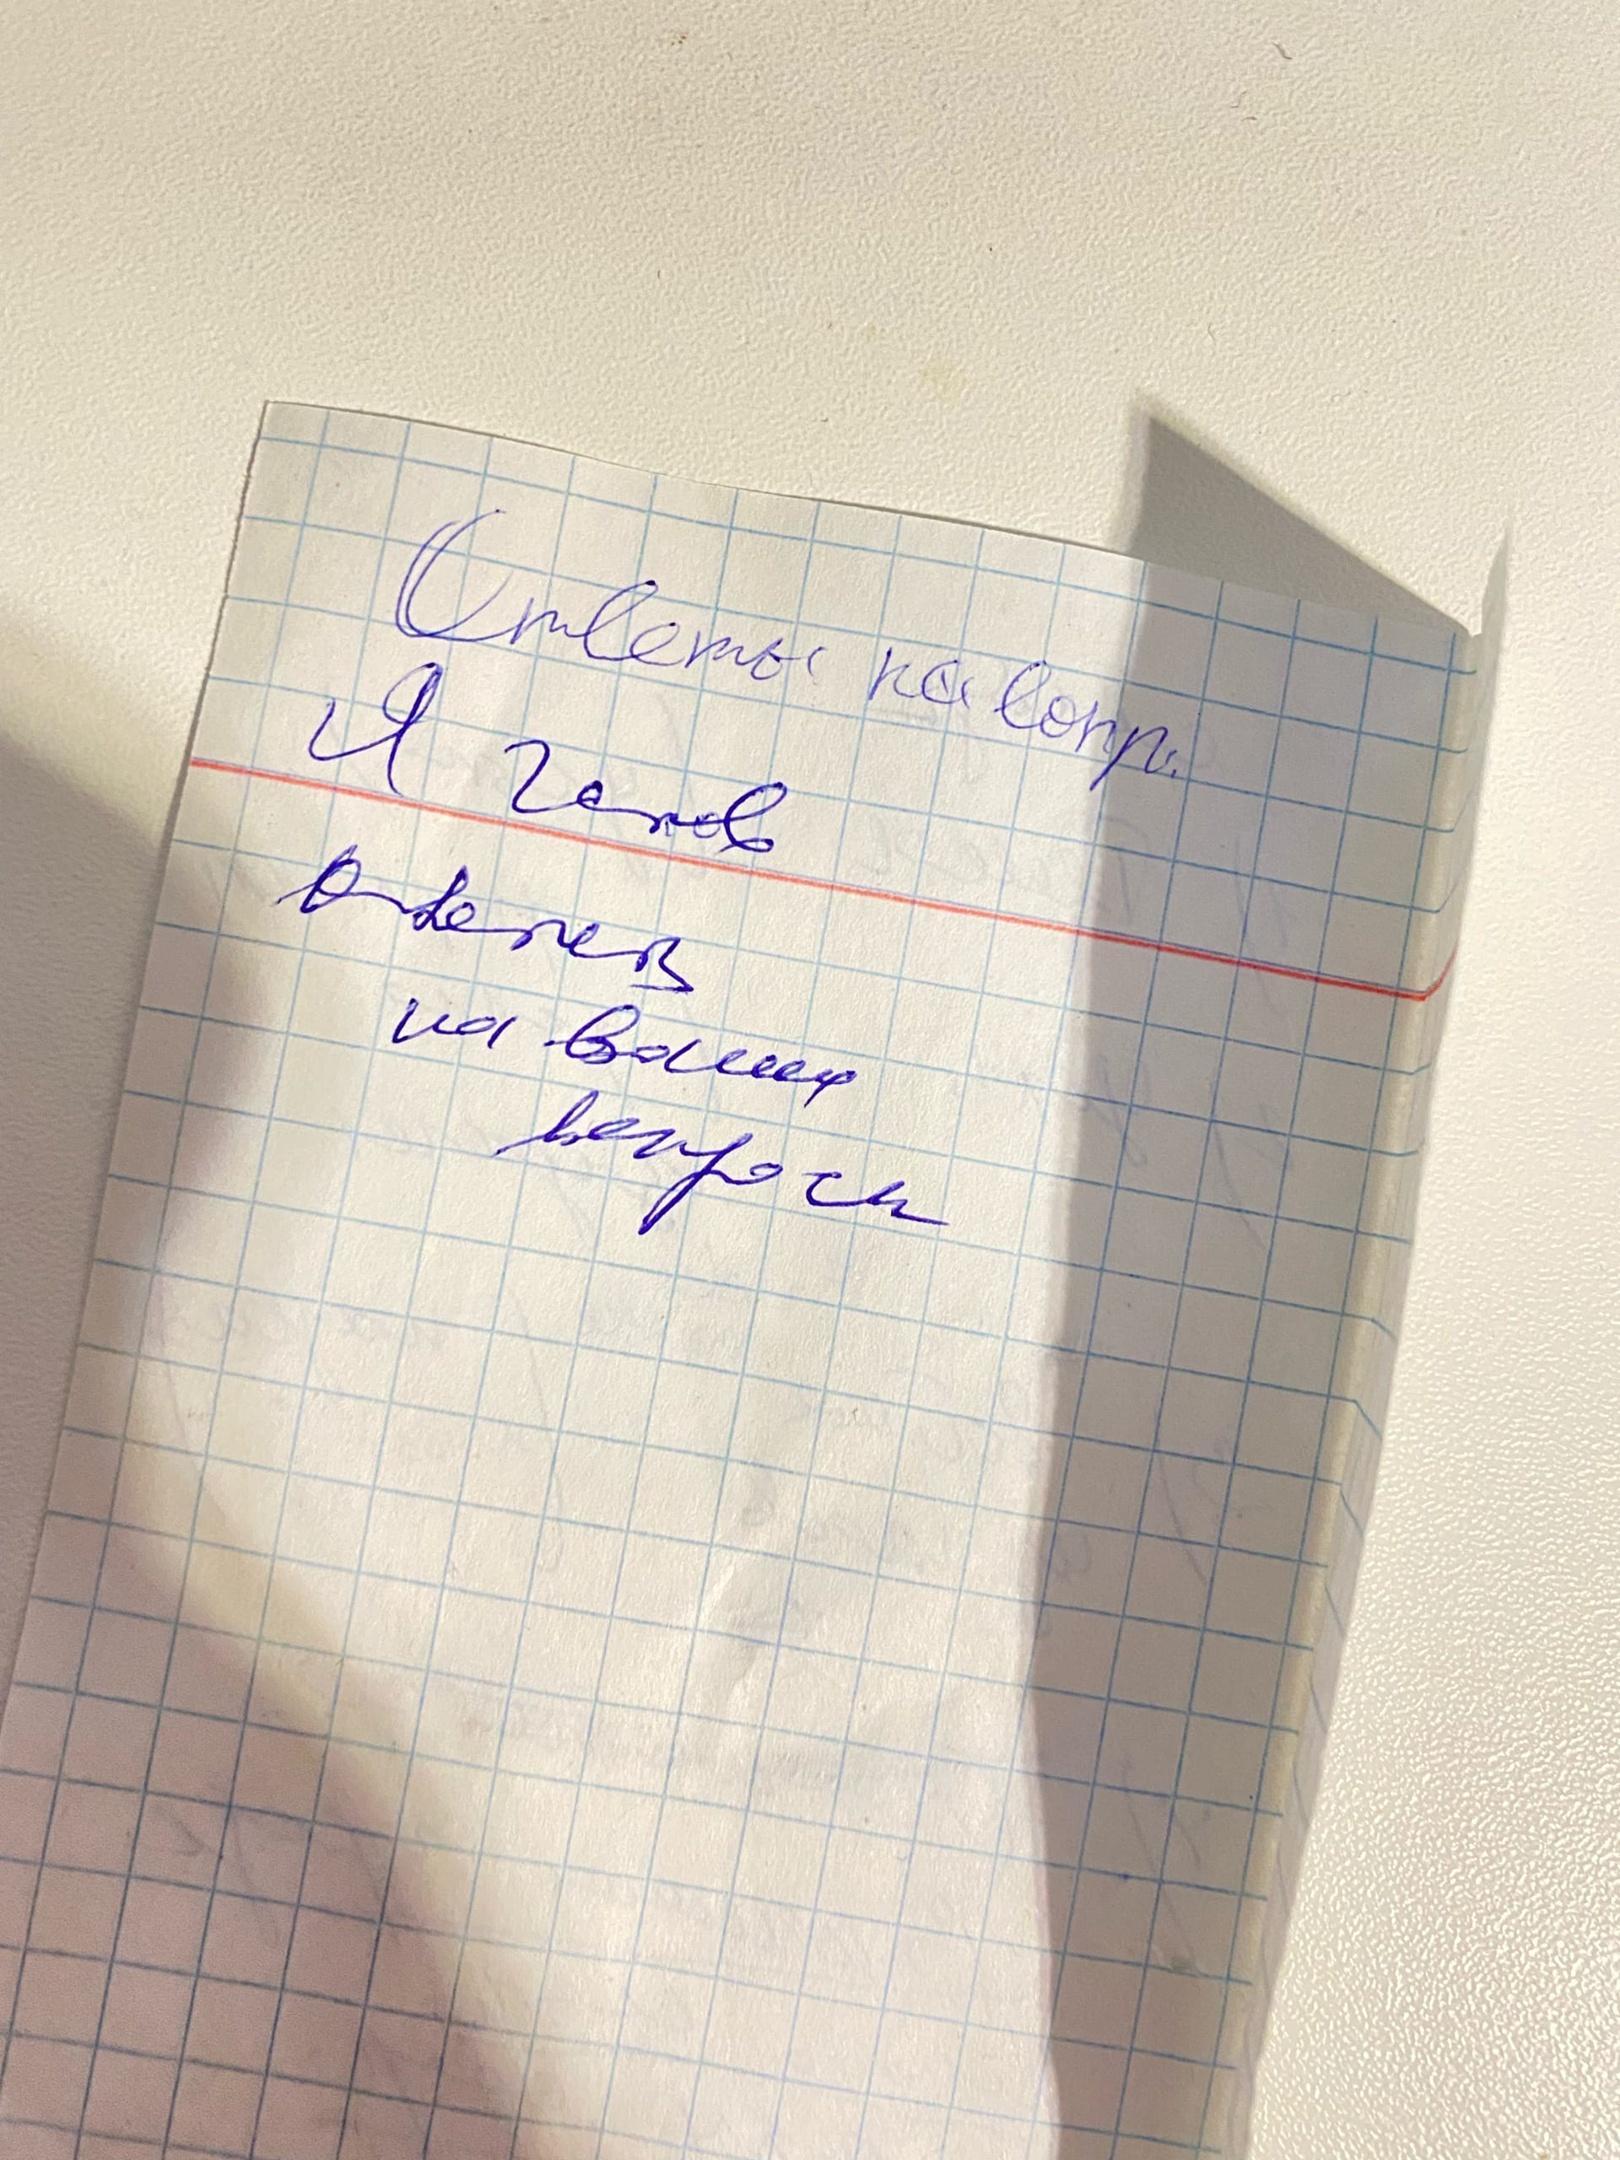 Ответы на вопр.
Я готов
ответить
на ваши
вопросы